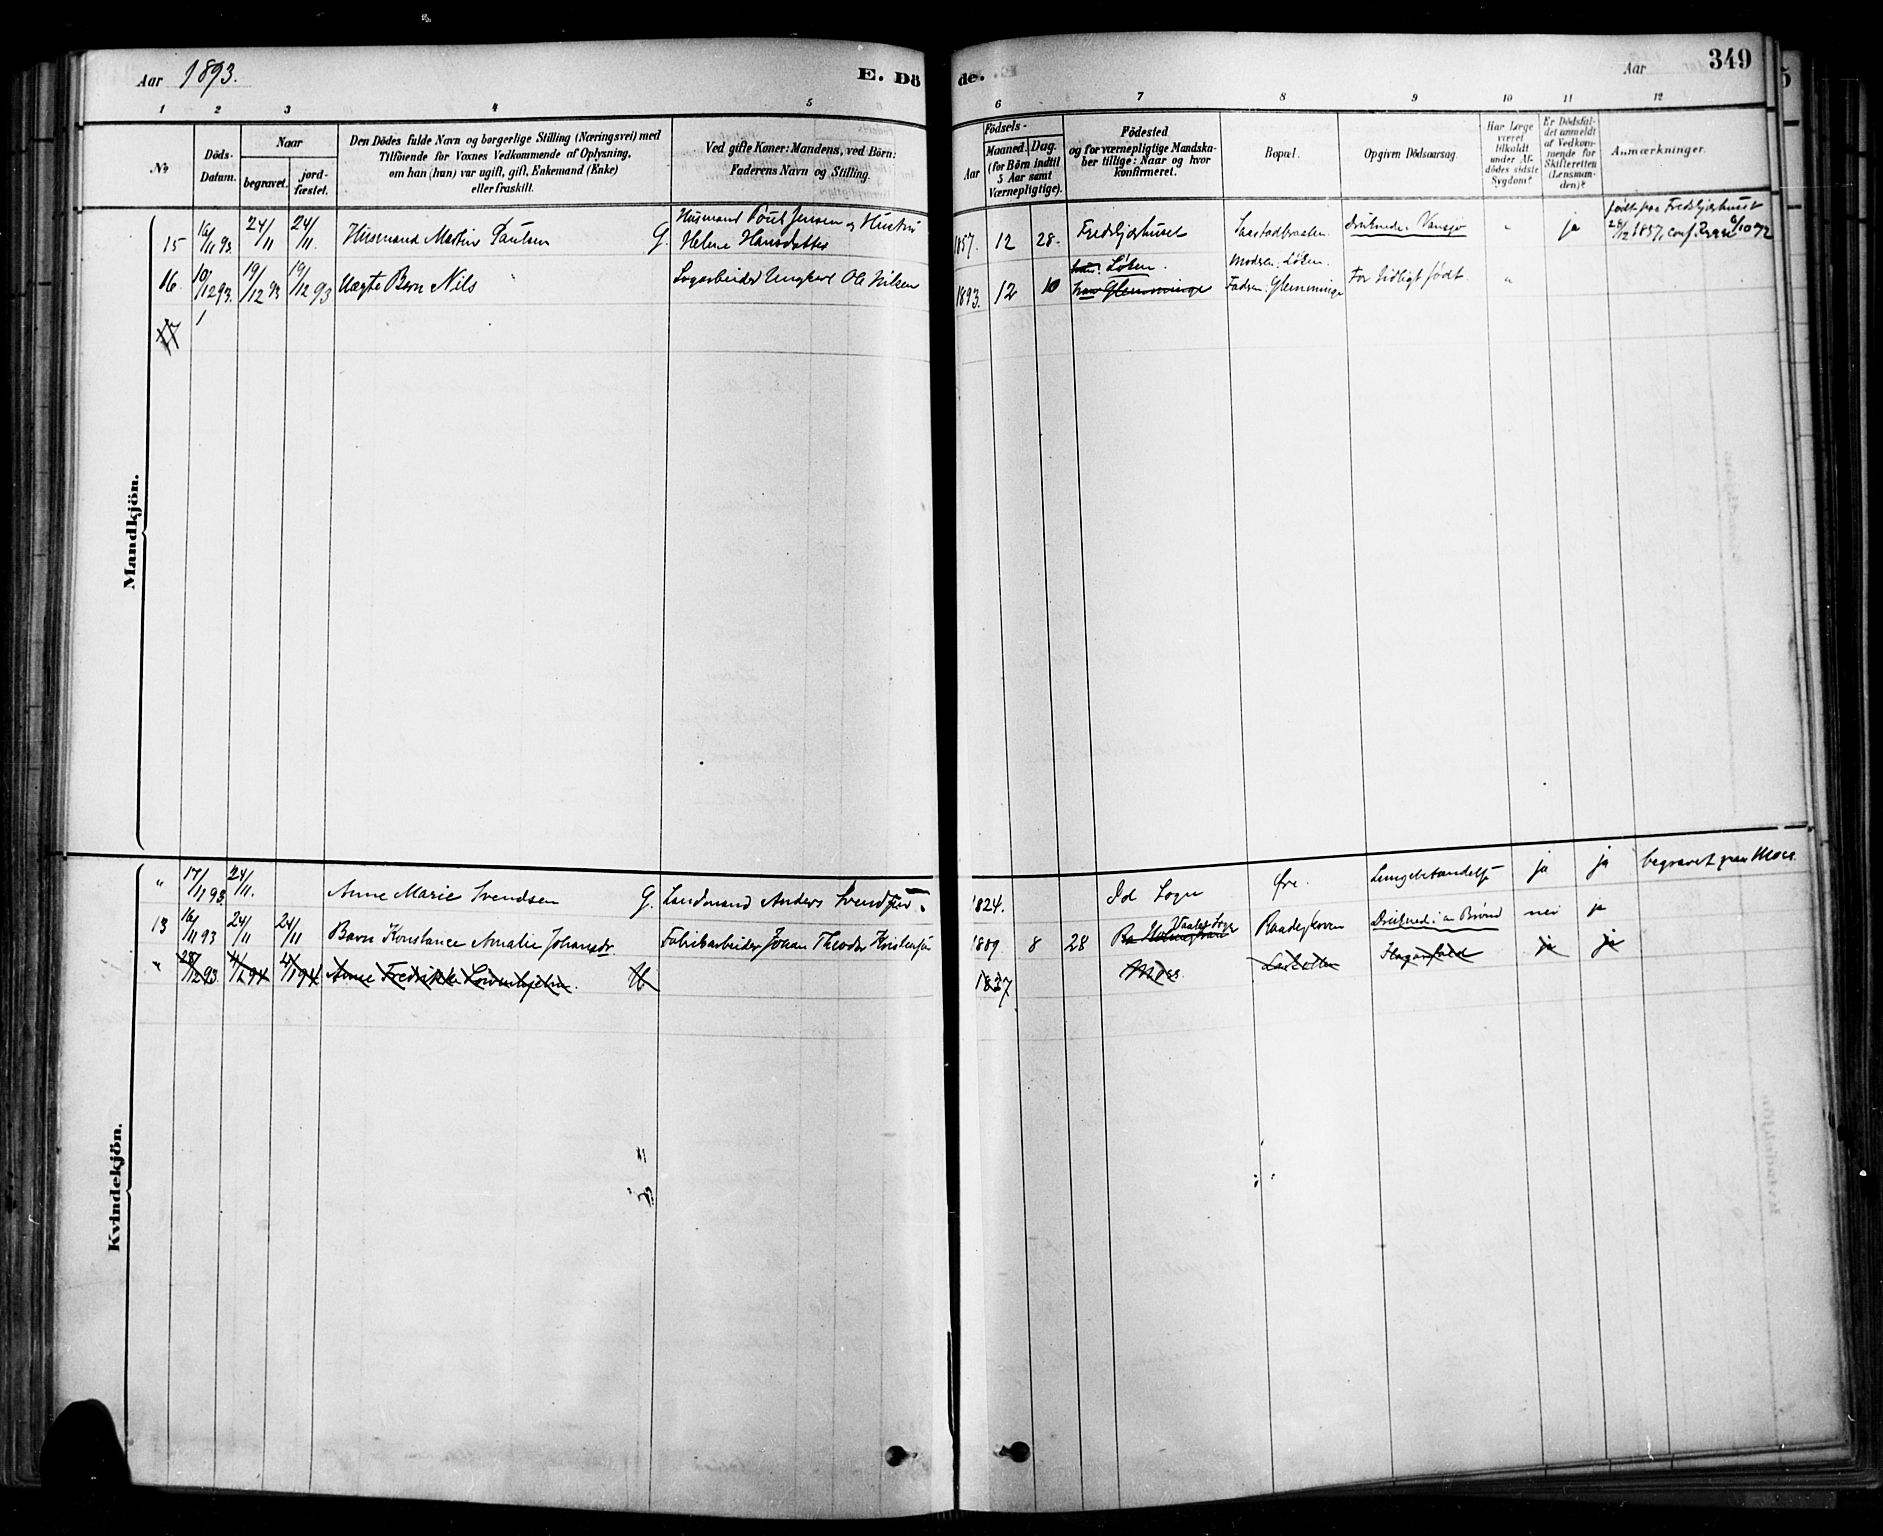 Aar 1893.
E. Dö
de.
Aar
349
1 2 3 4 5 6 7 8 9 10 11 12
No
Döds-
Datum.
Naar
begravet.
jord-
fæstet.
Den Dödes fulde Navn og borgerlige Stilling (Næringsvei) med
Tilföiende for Voxnes Vedkommende af Oplysning,
om han (hun) var ugift, gift, Enkemand (Enke)
eller fraskilt.
Ved gifte Koner: Mandens, ved Börn:
Faderens Navn og Stilling.
Födsels-
Aar
Maaned.
Dag.
(for Börn indtil
5 Aar samt
Værnepligtige).
Födested
og for værnepligtige Mandska-
ber tillige: Naar og hvor
konfirmeret.
Bopæl.
Opgiven Dödsaarsag.
Har Læge
været
tilkaldt
under Af-
dödes sidste
Sygdom?
Er Dödsfal-
det anmeldt
af Vedkom-
mende for
Skifteretten
(Lensman-
den)?
Anmærkninger.
Mandkjön.
15 16/11 93. 24/11 24/11. Husmand Martin Paulsen G. Husmand Poul Jensen og Hustru
Helene Hansdatter 1857. 12 28. ja født paa
28/12 1857, conf. 6/10 72
16. 10/12 93. 19/12 93 19/12 93 Uægte Barn Nils Ungkarl Ole Nilsen 1893. 12 10 Løken.
Glemminge Modsen: Løken.
Fadsen: Glemminge For tidligt født. "
17
Kvindekjön.
" 17/11 93. 24/11. Anne Marie Svendsen G. Landmand Anders Svendsen. 1824. Id Sogn Øre. Lungebetændelse ja ja begravet paa Moss.
13 16/11 93 24/11 24/11 Barn Konstance Amalie Johansdr Fabrikarbeider Johan Theodor Kristensen 1889 8 28 Vaaler Sogn Druknede i en Brønd nei ja
" 28/12 93. 4/1 94 4/1 94 Anne Fredrikke U 1837 Moss ja ja